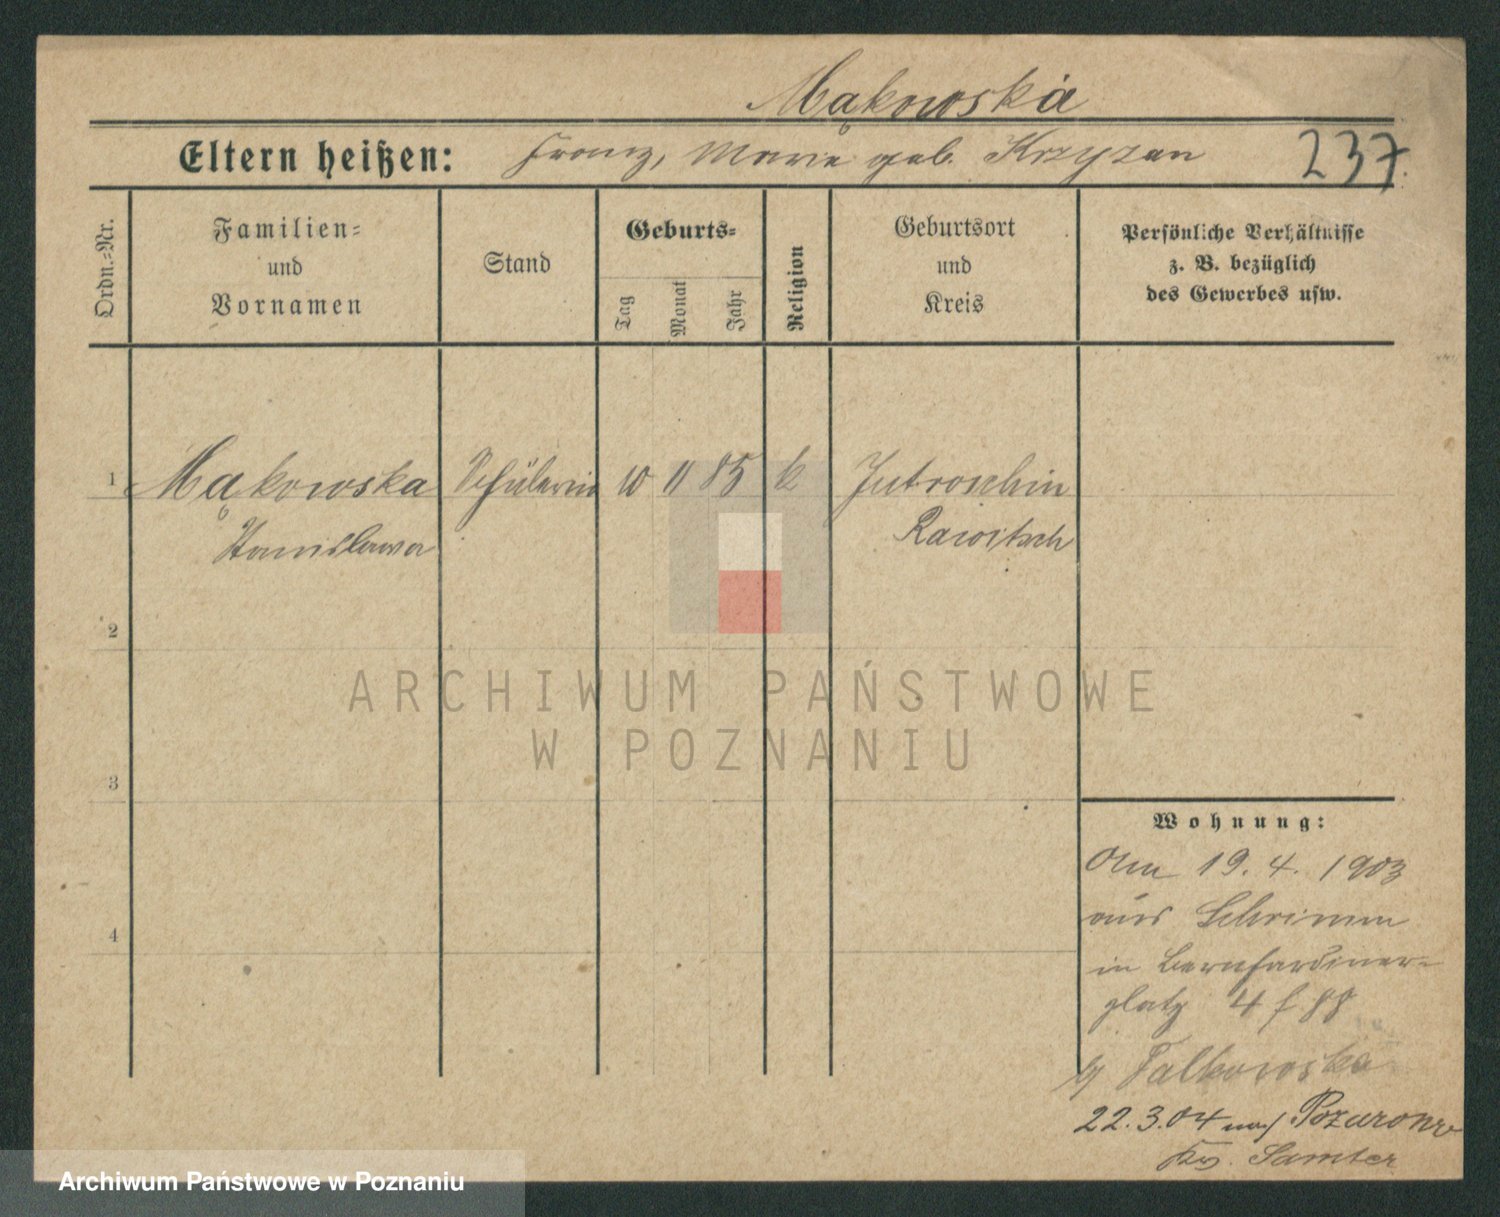 Mąkowska
Eltern heißen: Franz, Marie geb. Krzyzan 237.
Ordn.=Nr.
Familien=
und
Vornamen
Stand
Geburts=
Tag
Monat
Jahr
Religion
Geburtsort
und
Kreis
Persönliche Verhältnisse
z. B. bezüglich
des Gewerbes usw.
1 Mąkowska Schülerin 10 11 85 k Jutroschin
Stanislawa Rawitsch
2
3
4
Wohnung:
Am 19. 4. 1903
aus Schrimm
in Bernhardiner=
platz 4
b/ Falkowska
22.3.04 nach
Krs. Samter
ARCHIWUM PAŃSTWOWE
W POZNANIU
Archiwum Państwowe w Poznaniu